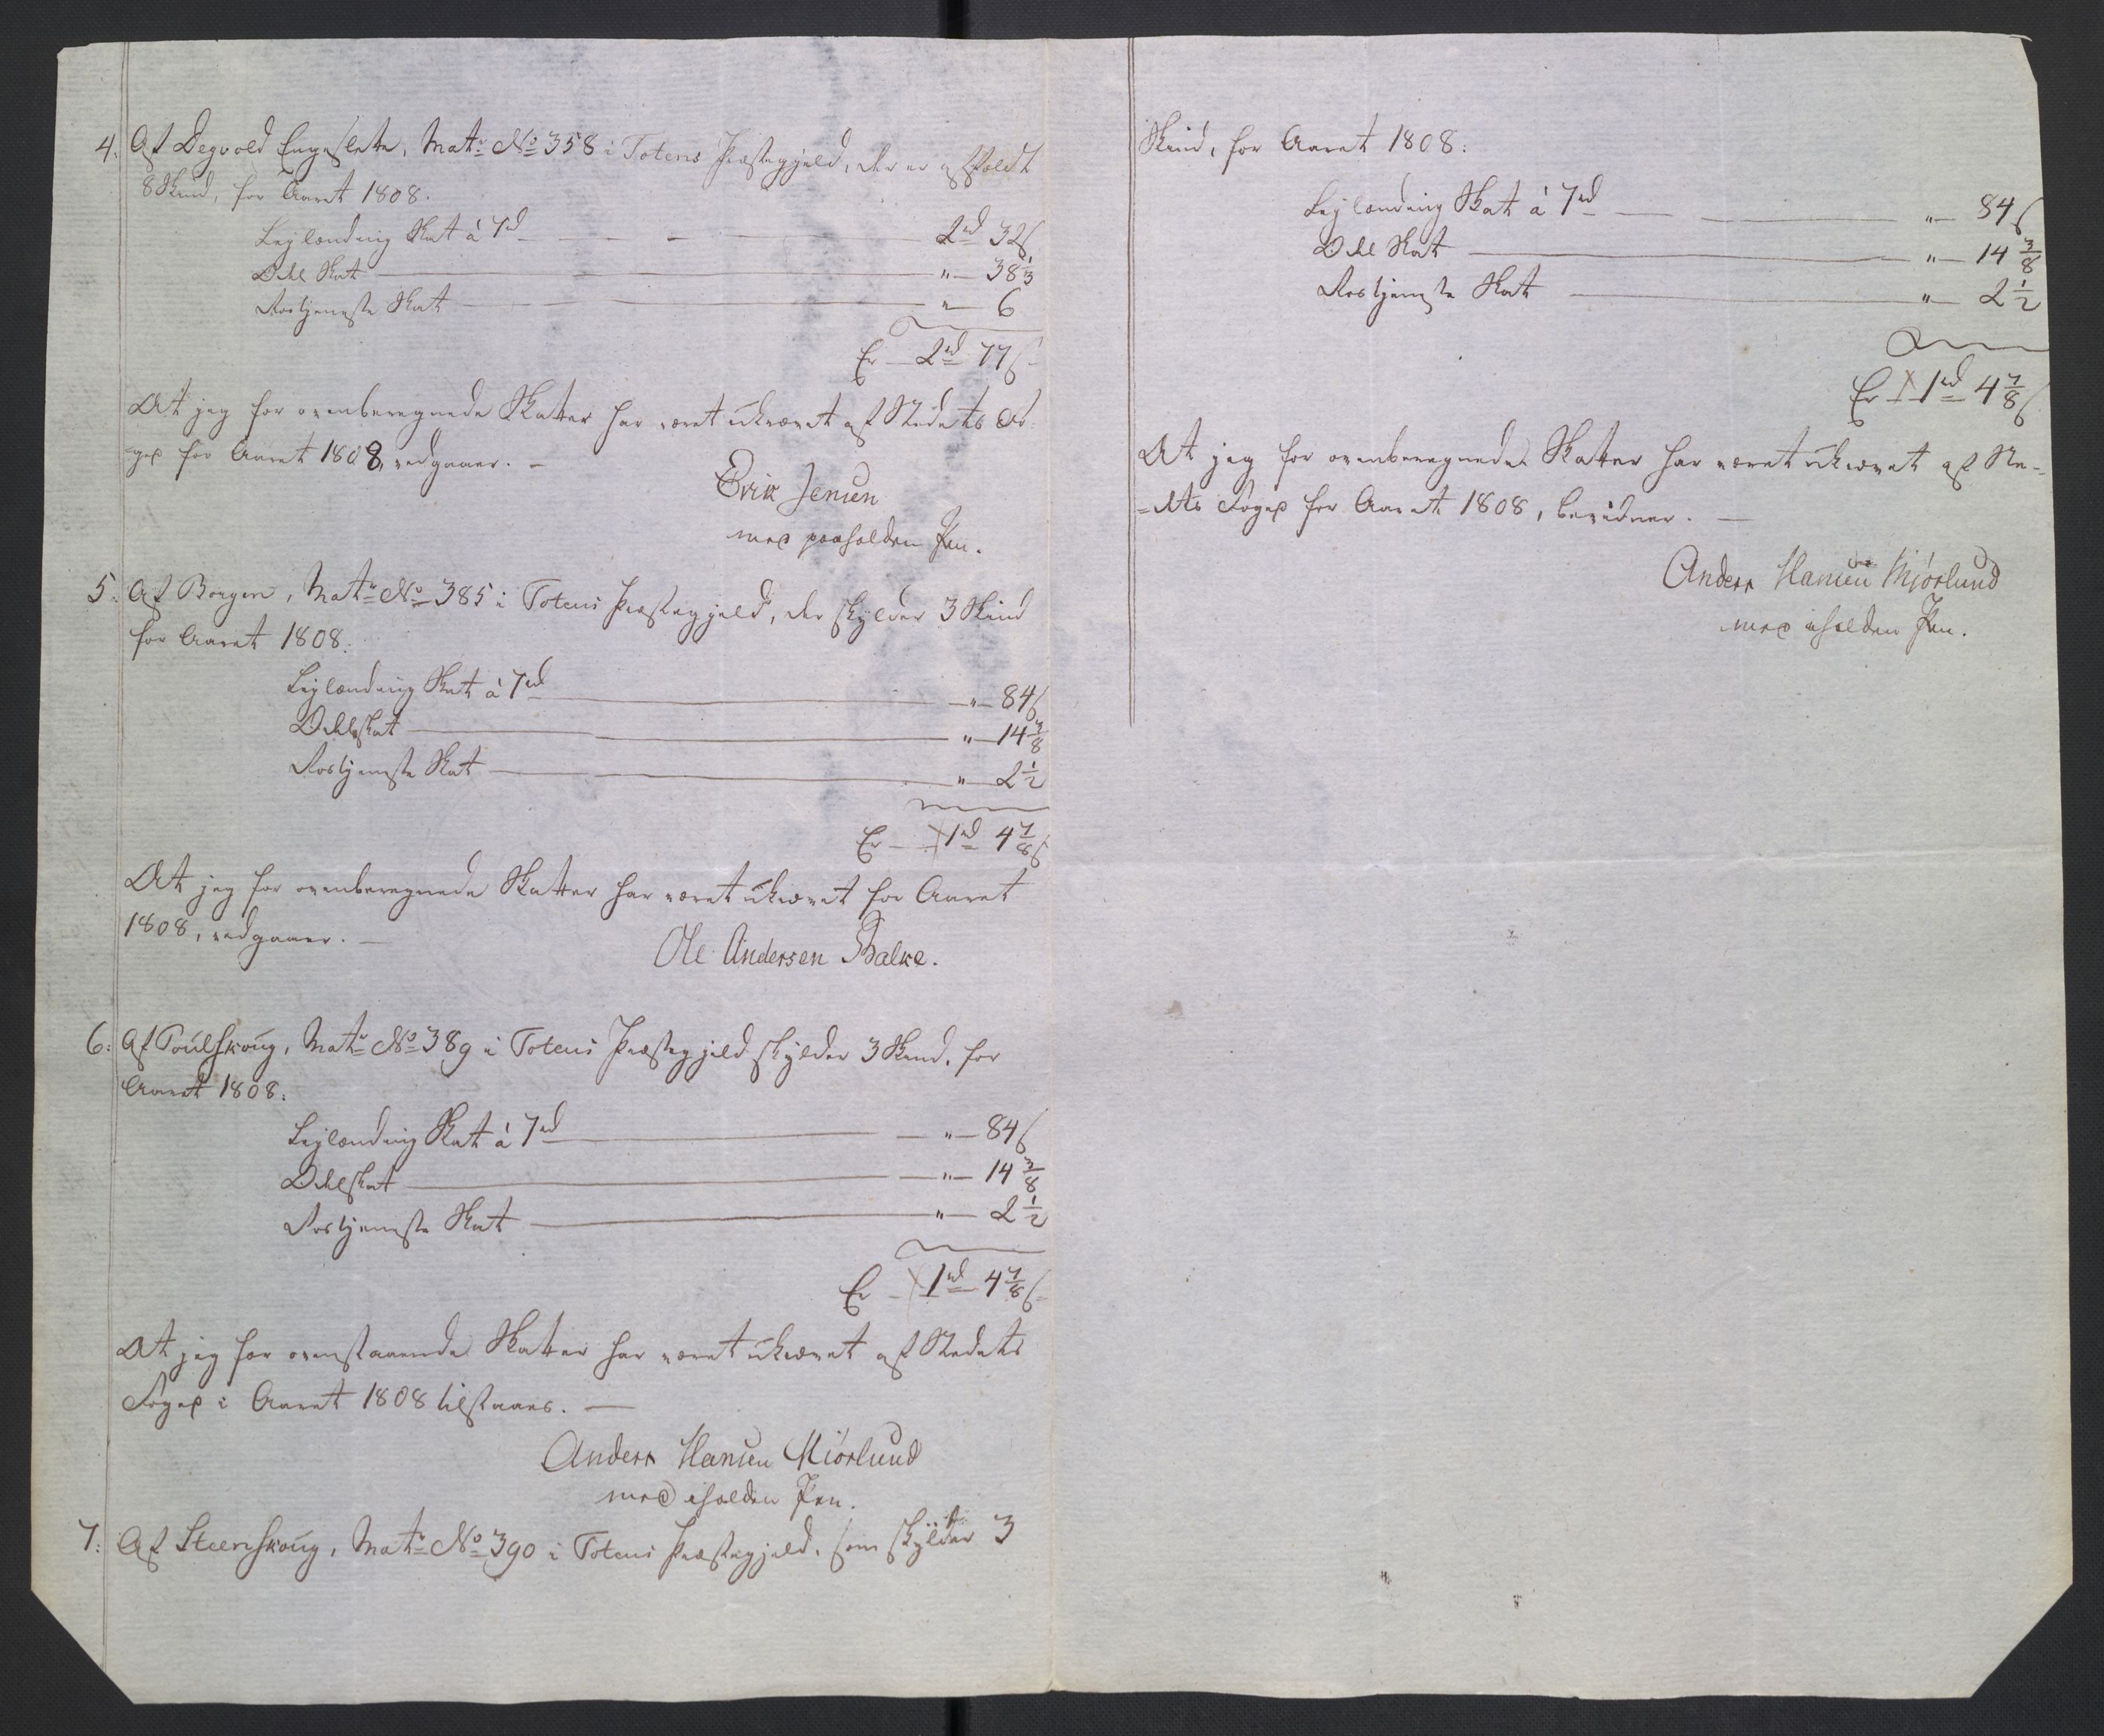 4. Af Degvold Engeslette, Matr: No 358 i Totens Præstegjeld, der er afskyldt
8 Skind, for Aaret 1808.
Leylænding Skat à 7d — — 2rd 32ſ
Odel Skat — " — 38 1/3
Rostjeneste Skat — " — 6
Er — 2rd 77ſ
At jeg for ovenberegnede Skatter har været ukrævet af Stedets Fo-
get for Aaret 1808, vedgaaer. —
Erik Jensen
med paaholden Pen.
5. Af Borgen, Matr: No 385 i Totens Præstegjeld, der skylder 3 Skind
for Aaret 1808:
Leylænding Skat à 7rd — " — 84ſ
Odelskat — " — 14 3/8
Rostjeneste Skat — " — 2 1/2
Er — 1rd 4 7/8ſ
At jeg for ovenberegnede Skatter har været ukrævet for Aaret
1808, vedgaaer. —
Ole Andersen Balke.
6: Af Poulskoug, Matr: No 389 i Totens Præstegjeld skylder 3 Skind, for
Aaret 1808:
Leylænding Skat à 7rd — " — 84ſ
Odelskat — " — 14 3/8
Rostjeneste Skat — " — 2 1/2
Er — 1rd 4 7/8ſ
At jeg for ovenstaaende Skatter har været ukrævet af Stedets
Foget i Aaret 1808 tilstaaes. —
Anders Hansen Miørlund
med iholden Pen.
7: Af Steenskoug, Matr: No 390 i Totens Præstegjeld, som skylder 3
Skind, for Aaret 1808:
Leylænding Skat à 7rd — " — 84ſ
Odel Skat — " — 14 3/8
Rostjeneste Skat — " — 2 1/2
Er — 1rd 4 7/8ſ
At jeg for ovenberegnede Skatter har været ukrævet af Ste-
-dets Foget for Aaret 1808, bevidner. —
Anders Hansen Mjørlund
med iholden Pen.